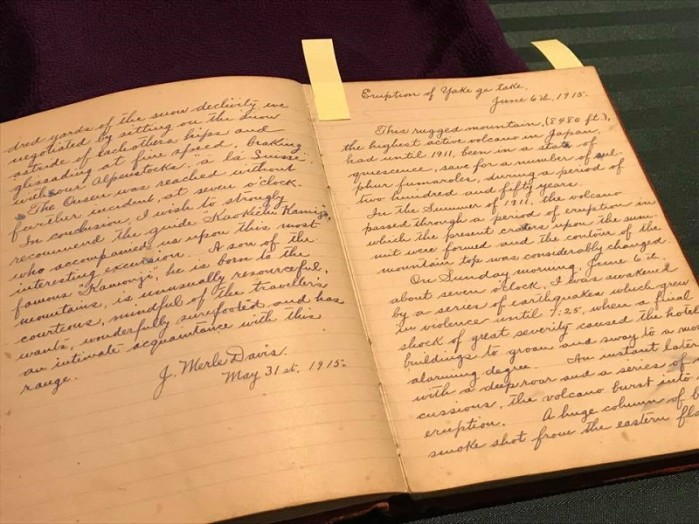 dred yards of the snow declivity we
negotiated by sitting on the snow
astride of eachothers hips and
glissading at fine speed, braking
with our Alpenstocks "a la Suisse".
The Onsen was reached without
further incident, at seven o'clock.
In conclusion, I wish to strongly
recommend the guide Kaokichi Kamijo,
who accompanied us upon this most
interesting excursion. A son of the
famous "Kamonji", he is born to the
mountains, is unusually resourceful,
courteous, mindful of the traveller's
wants, wonderfully surefooted, and has
an intimate acquaintance with this
range.
J. Merle Davis.
May 31st, 1915.
Eruption of Yake ga take.
June 6th, 1915.
This rugged mountain, (8480 ft),
the highest active volcano in Japan,
had until 1911, been in a state of
quiescence, save for a number of sul-
phur fumaroles, during a period of
two hundred and fifty years.
In the Summer of 1911, the volcano
passed through a period of eruption in
which the present craters upon the sum-
mit were formed and the contour of the
mountain top was considerably changed.
On Sunday morning, June 6th,
about seven o'clock, I was awakened
by a series of earthquakes which grew
in violence until 7:25, when a final
shock of great severity caused the hotel
buildings to groan and sway to a
alarming degree. An instant later
with a deep roar and a series of
cussions, the volcano burst into
eruption. A huge column of
smoke shot from the eastern